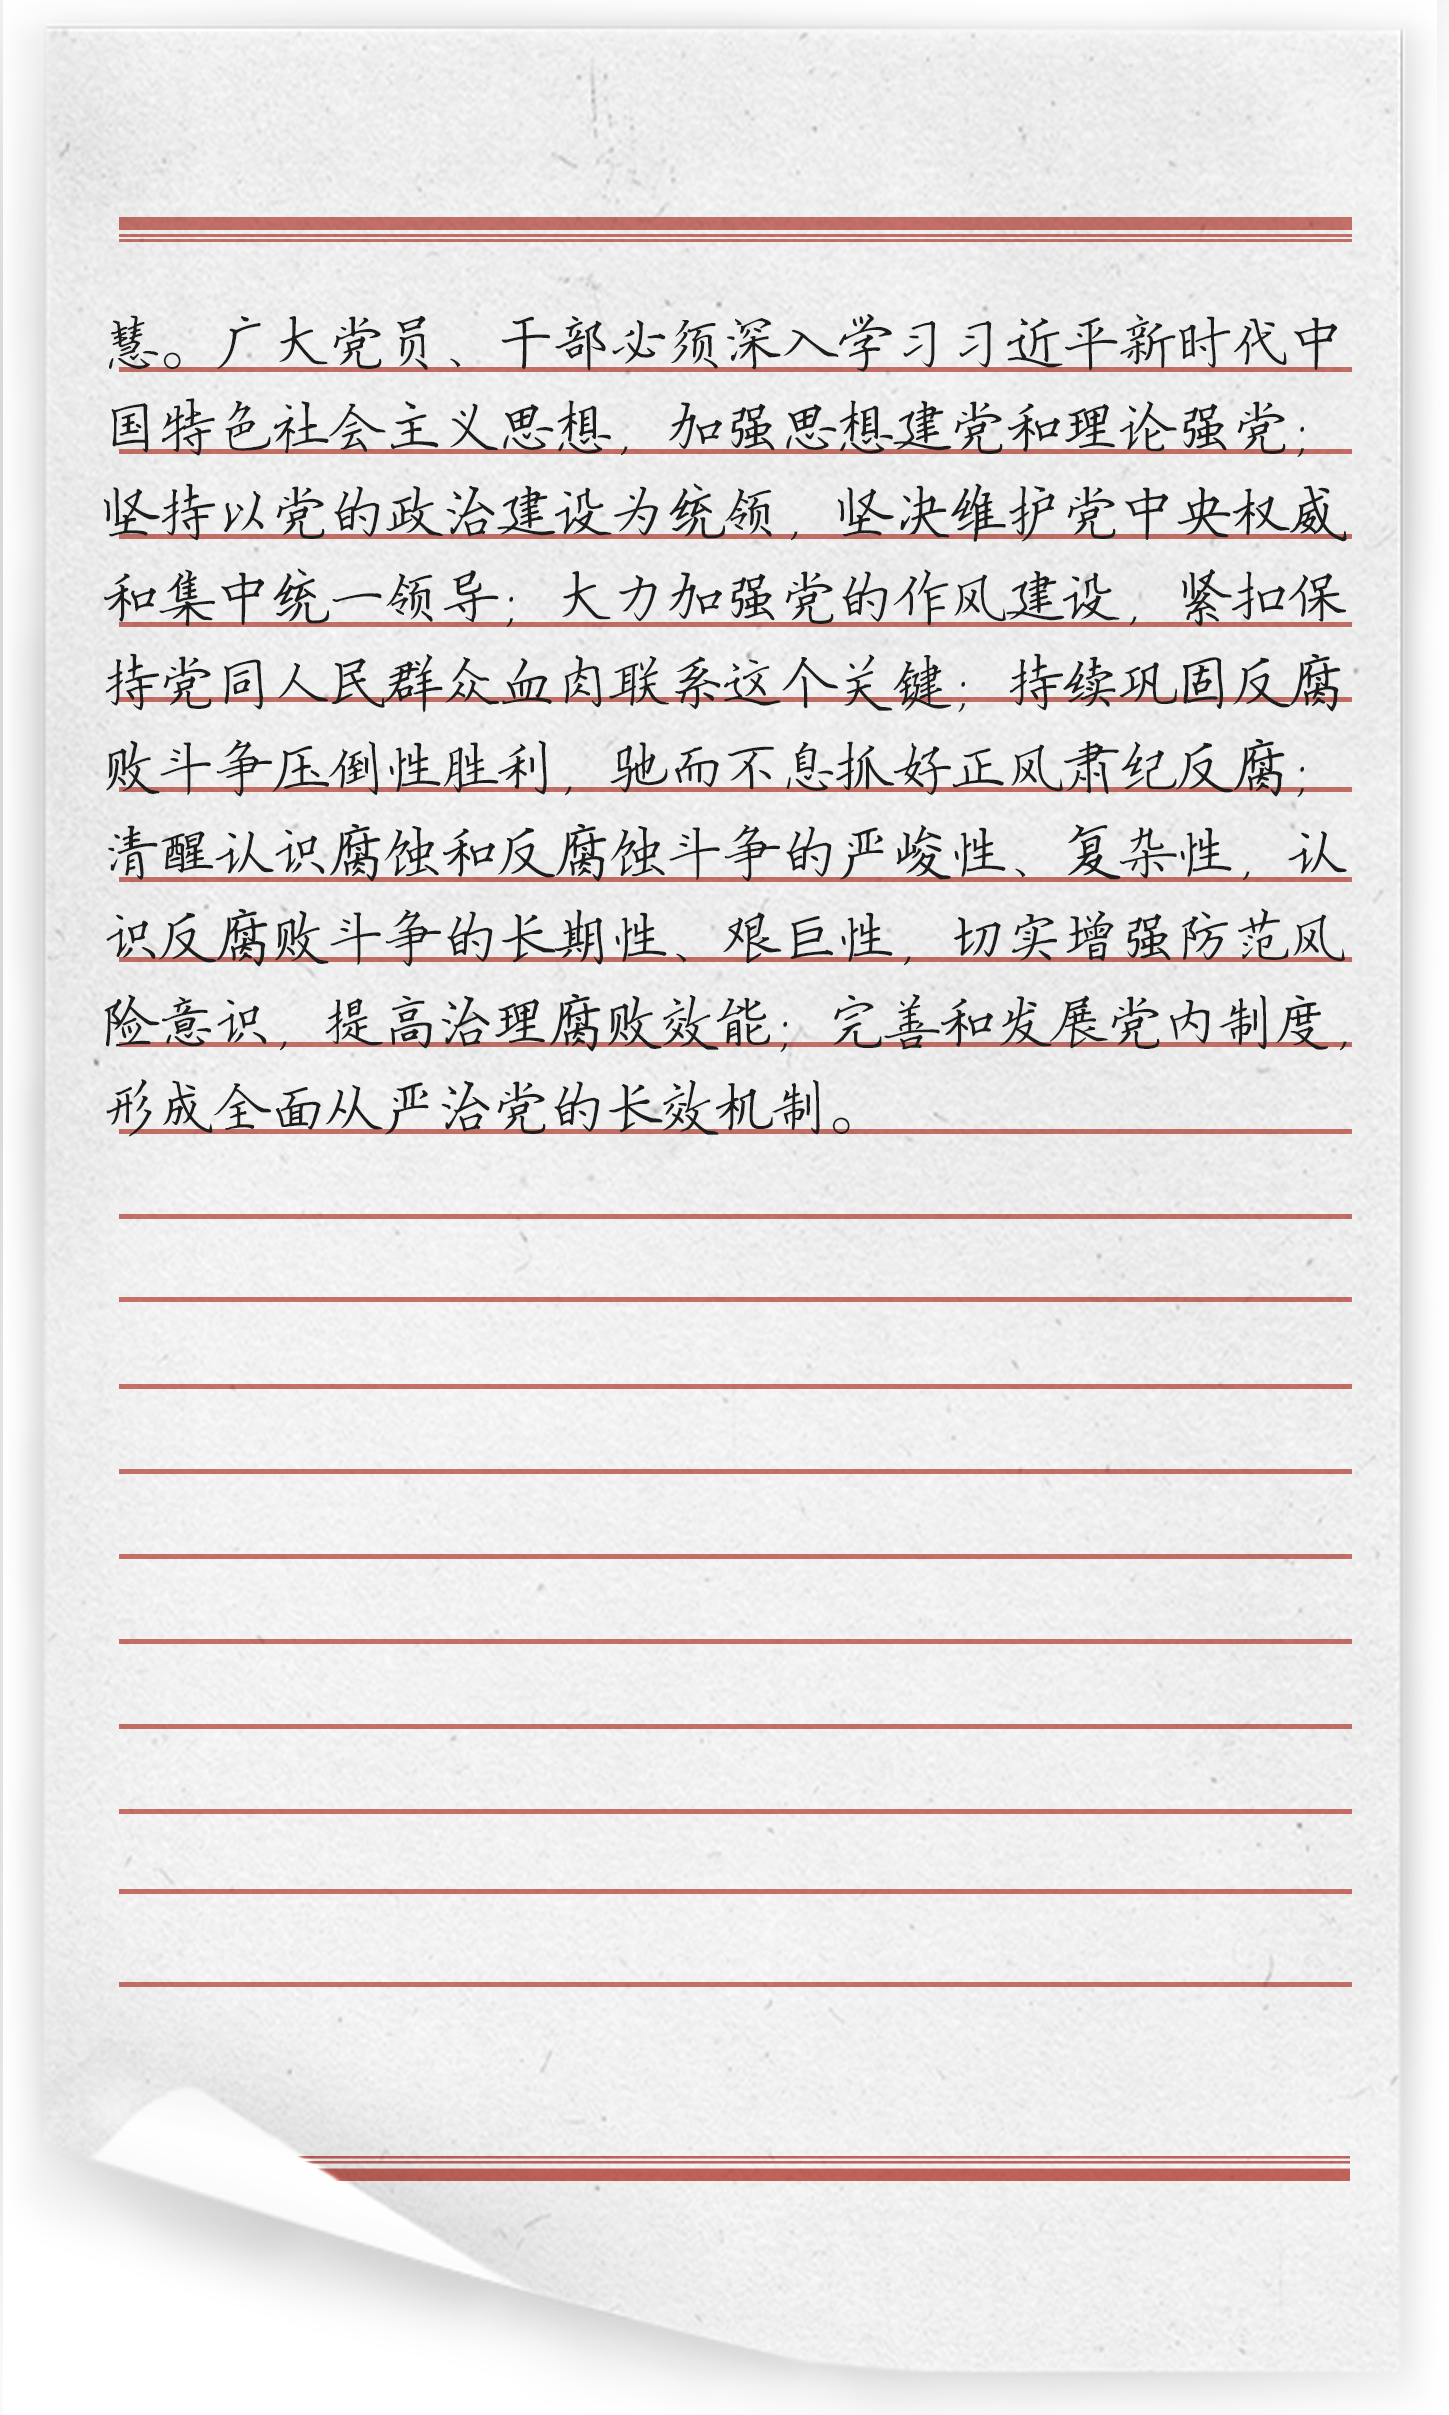 慧。广大党员、干部必须深入学习习近平新时代中
国特色社会主义思想，加强思想建党和理论强党；
坚持以党的政治建设为统领，坚决维护党中央权威
和集中统一领导；大力加强党的作风建设，紧扣保
持党同人民群众血肉联系这个关键；持续巩固反腐
败斗争压倒性胜利，驰而不息抓好正风肃纪反腐；
清醒认识腐蚀和反腐蚀斗争的严峻性、复杂性，认
识反腐败斗争的长期性、艰巨性，切实增强防范风
险意识，提高治理腐败效能；完善和发展党内制度，
形成全面从严治党的长效机制。